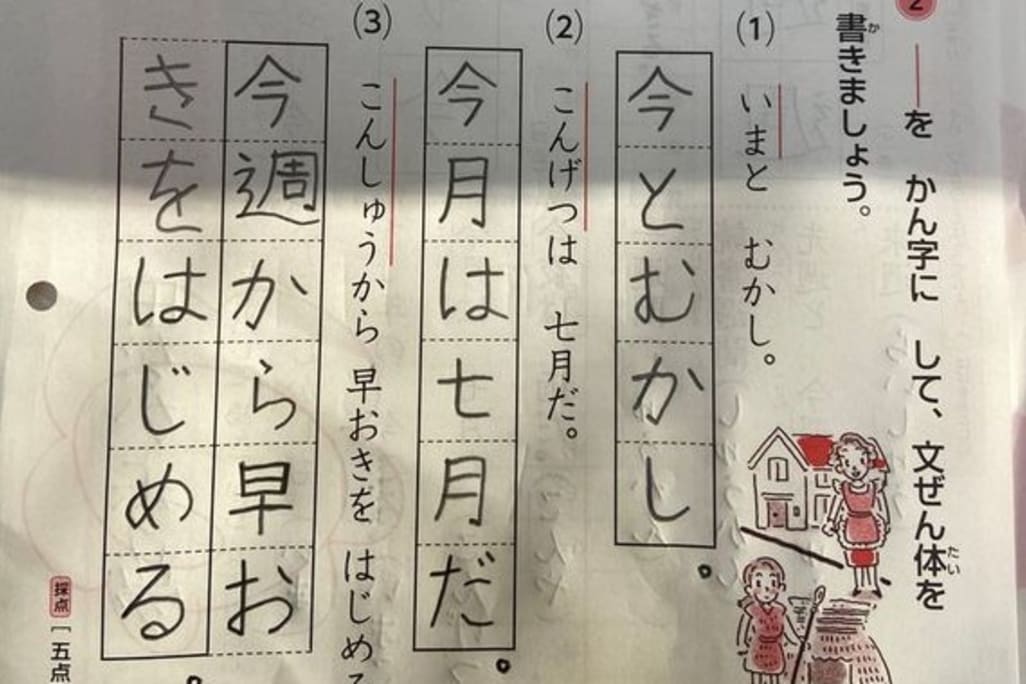 2 ――を かん字に して、文ぜん体を
書きましょう。
(1) いまと むかし。
今とむかし。
(2) こんげつは 七月だ。
今月は七月だ。
(3) こんしゅうから 早おきを はじめ
今週から早お
きをはじめる。
採点
五点